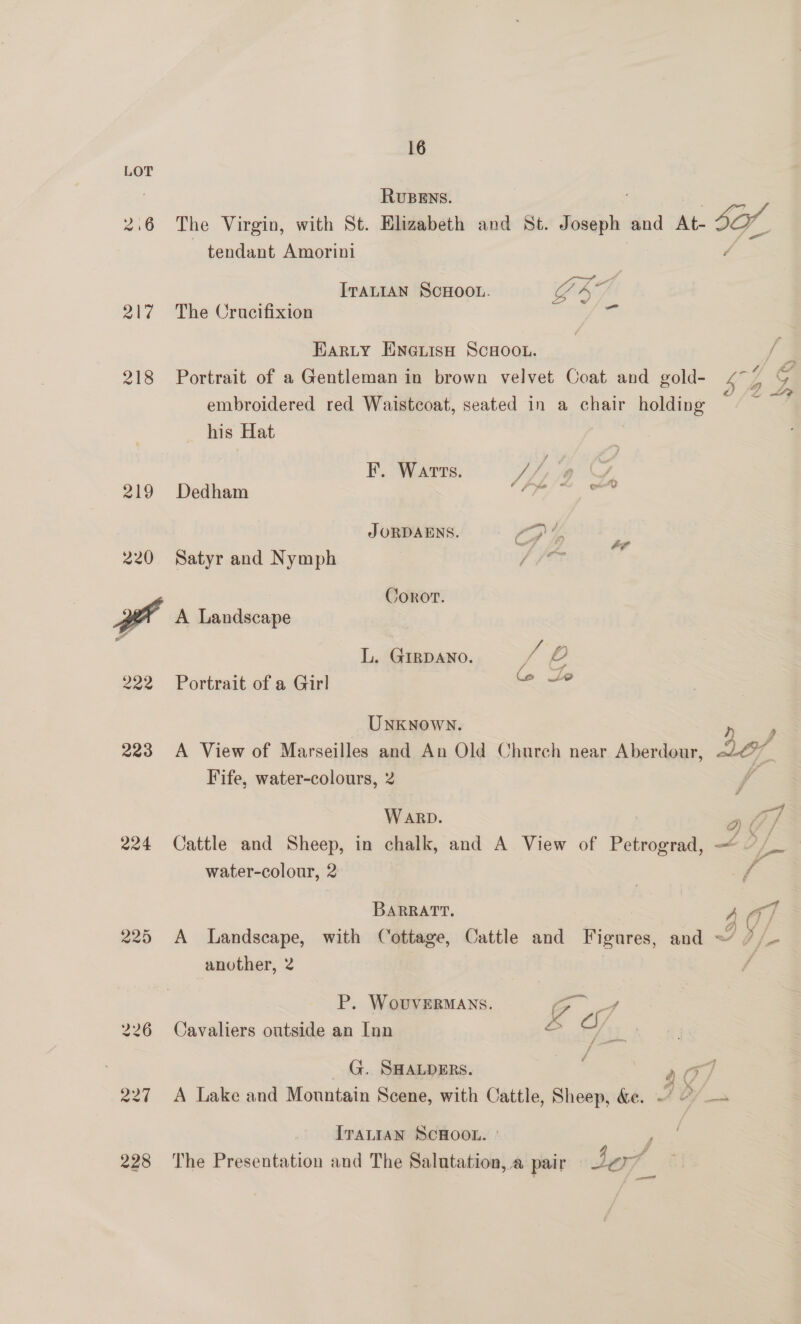 16
LOT
RUBENS.
216 The Virgin, with St. Elizabeth and St. Joseph and At-
tendant Amorini
ITALIAN SCHOOL.
217 The Crucifixion
EARLY ENGLISH SCHOOL.
218 Portrait of a Gentleman in brown velvet Coat and gold-
embroidered red Waistcoat, seated in a chair holding
his Hat
F. WATTS.
219 Dedham
JORDAENS.
220 Satyr and Nymph
COROT.
A Landscape
L. GIRDANO.
222 Portrait of a Girl
UNKNOWN.
223 A View of Marseilles and An Old Church near Aberdour,
Fife, water-colours, 2
WARD.
224 Cattle and Sheep, in chalk, and A View of Petrograd,
water-colour, 2
BARRATT.
225 A Landscape, with Cottage, Cattle and Figures, and
another, 2
P. WOUVERMANS.
226 Cavaliers outside an Inn
G. SHALDERS.
227 A Lake and Mountain Scene, with Cattle, Sheep, &c.
ITALIAN SCHOOL.
228 The Presentation and The Salutation, a pair